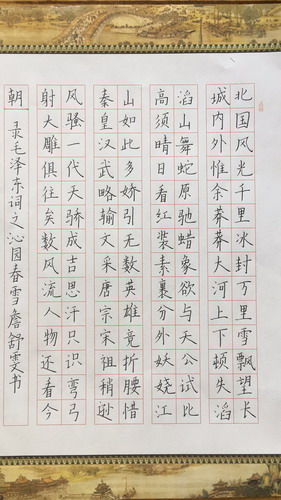 北国风光千里冰封万里雪飘望长
城内外惟余莽莽大河上下顿失滔
滔山舞蛇原驰蜡象欲与天公试比
高须晴日看红装素裹分外妖娆江
山如此多娇引无数英雄竞折腰惜
秦皇汉武略输文采唐宗宋祖稍逊
风骚一代天骄成吉思汗只识弯弓
射大雕俱往矣数风流人物还看今
朝 录毛泽东词之沁园春雪詹舒雯书